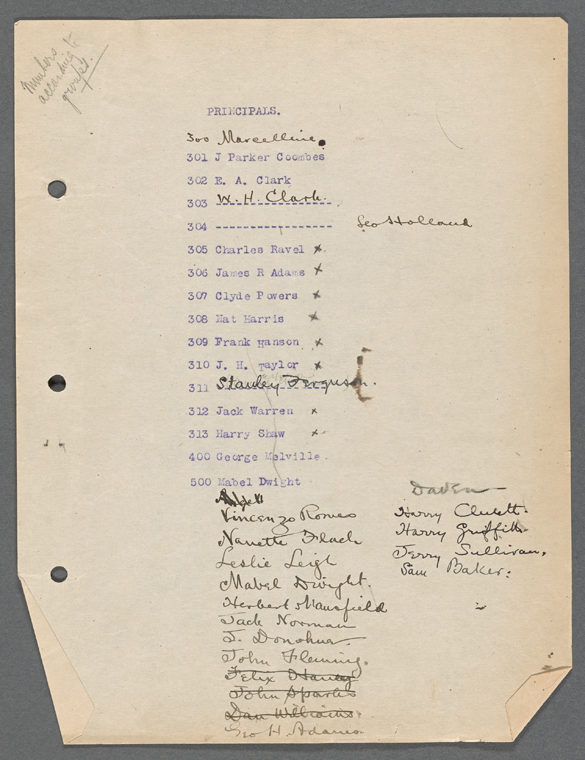 Numbers
according to
groups.
PRINCIPALS.
300 Marcelline.
301 J Parker Coombes
302 E. A. Clark
303 W. H. Clark.
304 ---------------- Geo Holland
305 Charles Ravel x
306 James R Adams x
307 Clyde Powers x
308 Nat Harris x
309 Frank Hanson x
310 J. H. Taylor x
311 Stanley Ferguson.
312 Jack Warren x
313 Harry Shaw x
400 George Melville
500 Mabel Dwight
Vincenzo Romeo
Nanette Flack
Leslie Leigh
Mabel Dwight.
Herbert Mansfield
Jack Norman
J. Donohue
John Fleming.
Felix Haney
John Sparks
Dan Williams
Geo H. Adams
Harry Clulett.
Harry Griffith.
Jerry Sullivan.
Sam Baker.